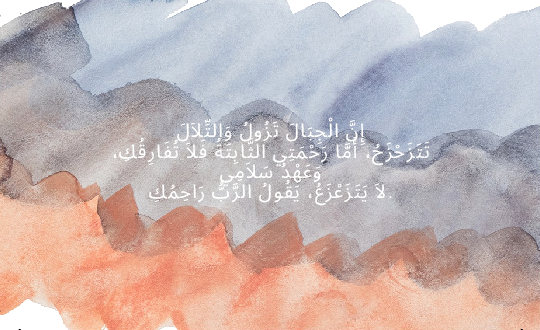 إِنَّ الْجِبَالَ تَزُولُ وَالتِّلاَلَ
تَتَزَحْزَحُ، أَمَّا رَحْمَتِي الثَّابِتَةُ فَلاَ تُفَارِقُكِ،
وَعَهْدُ سَلاَمِي
لاَ يَتَزَعْزَعُ، يَقُولُ الرَّبُّ رَاحِمُكِ.